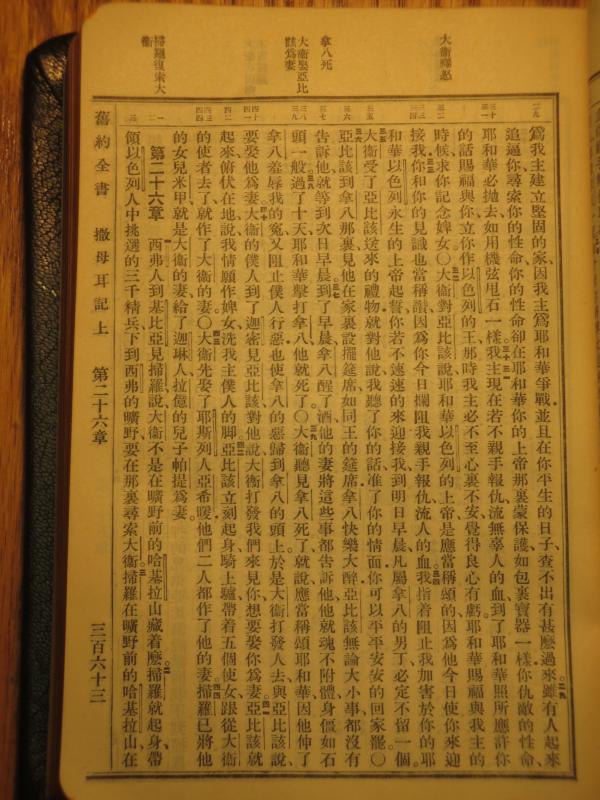 大衛釋怒
拿八死
大衛娶亞比
該爲妻
掃羅復索大
衛
爲我主建立堅固的家、因我主爲耶和華爭戰、並且在你平生的日子、查不出有甚麼過來。雖有人起來
追逼你、尋索你的性命、你的性命卻在耶和華你的上帝那裏蒙保護、如包裹寶器一樣、你仇敵的性命、
耶和華必拋去、如用機弦甩石一樣。我主現在若不親手報仇、流無辜人的血、到了耶和華照所應許你
的話賜福與你、立你作以色列的王、那時我主必不至心裏不安、覺得良心有虧、耶和華賜福與我主的
時候、求你記念婢女。〇大衛對亞比該說、耶和華以色列的上帝是應當稱頌的、因爲他今日使你來迎
接我。你和你的見識也當稱讚、因爲你今日攔阻我親手報仇、流人的血。我指着阻止我加害於你的耶
和華以色列永生的上帝起誓、你若不速速的來迎接我、到明日早晨、凡屬拿八的男丁必定不留一個。
大衛受了亞比該送來的禮物、就對他說、我聽了你的話、准了你的情面、你可以平平安安的回家罷。〇
亞比該到拿八那裏、見他在家裏設擺筵席、如同王的筵席、拿八快樂大醉、亞比該無論大小事都沒有
告訴他、就等到次日早晨。到了早晨、拿八醒了酒、他的妻將這些事都告訴他、他就魂不附體、身僵如石
頭一般。過了十天、耶和華擊打拿八、他就死了。〇大衛聽見拿八死了、就說、應當稱頌耶和華、因他伸了
拿八羞辱我的冤、又阻止僕人行惡、也使拿八的惡歸到拿八的頭上、於是大衛打發人去、與亞比該說、
要娶他爲妻。大衛的僕人到了迦密見亞比該、對他說、大衛打發我們來見你、想要娶你爲妻。亞比該就
起來、俯伏在地、說、我情願作婢女、洗我主僕人的脚。亞比該立刻起身、騎上驢、帶着五個使女、跟從大衛
的使者去了、就作了大衛的妻。〇大衛先娶了耶斯列人亞希暖、他們二人都作了他的妻。掃羅已將他
的女兒米甲、就是大衛的妻、給了迦琳人拉億的兒子帕提爲妻。
第二十六章　西弗人到基比亞見掃羅、說、大衛不是在曠野前的哈基拉山藏着麼。掃羅就起身、帶
領以色列人中挑選的三千精兵、下到西弗的曠野、要在那裏尋索大衛。掃羅在曠野前的哈基拉山、在
舊約全書　撒母耳記上　第二十六章　三百六十三